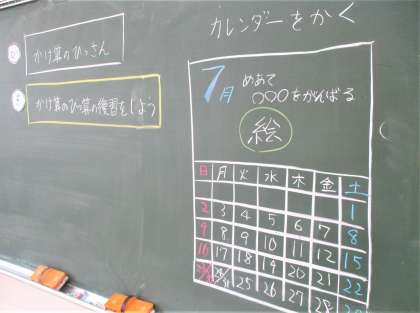 かけ算のひっさん
かけ算のひっ算の復習をしよう
カレンダーをかく
7月
めあて
○○○をがんばる
絵
日 月 火 水 木 金 土
1
2 3 4 5 6 7 8
9 8 9 10 11 12 15
16 17 18 14 20 21 22
25 26 27 28